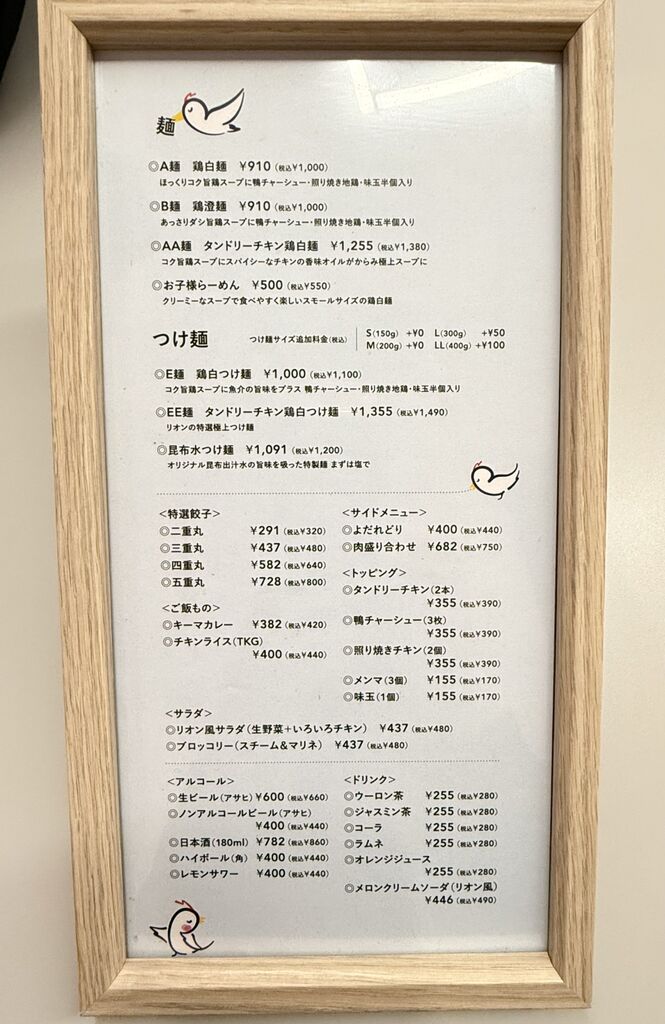 麺
◎A麺 鶏白麺 ¥910(税込¥1,000)
ほっくりコク旨鶏スープに鴨チャーシュー・照り焼き地鶏・味玉半個入り
◎B麺 鶏澄麺 ¥910(税込¥1,000)
あっさりダシ旨鶏スープに鴨チャーシュー・照り焼き地鶏・味玉半個入り
◎AA麺 タンドリーチキン鶏白麺 ¥1,255(税込¥1,380)
コク旨鶏スープにスパイシーなチキンの香味オイルがからみ極上スープに
◎お子様らーめん ¥500(税込¥550)
クリーミーなスープで食べやすく楽しいスモールサイズの鶏白麺
つけ麺 つけ麺サイズ追加料金(税込) S(150g) +¥0 L(300g) +¥50
M(200g) +¥0 LL(400g) +¥100
◎E麺 鶏白つけ麺 ¥1,000(税込¥1,100)
コク旨鶏スープに魚介の旨味をプラス 鴨チャーシュー・照り焼き地鶏・味玉半個入り
◎EE麺 タンドリーチキン鶏白つけ麺 ¥1,355(税込¥1,490)
リオンの特選極上つけ麺
◎昆布水つけ麺 ¥1,091(税込¥1,200)
オリジナル昆布出汁水の旨味を吸った特製麺 まずは塩で
<特選餃子>
◎二重丸 ¥291(税込¥320)
◎三重丸 ¥437(税込¥480)
◎四重丸 ¥582(税込¥640)
◎五重丸 ¥728(税込¥800)
<ご飯もの>
◎キーマカレー ¥382(税込¥420)
◎チキンライス(TKG)
¥400(税込¥440)
<サイドメニュー>
◎よだれどり ¥400(税込¥440)
◎肉盛り合わせ ¥682(税込¥750)
<トッピング>
◎タンドリーチキン(2本)
¥355(税込¥390)
◎鴨チャーシュー(3枚)
¥355(税込¥390)
◎照り焼きチキン(2個)
¥355(税込¥390)
◎メンマ(3個) ¥155(税込¥170)
◎味玉(1個) ¥155(税込¥170)
<サラダ>
◎リオン風サラダ(生野菜+いろいろチキン) ¥437(税込¥480)
◎ブロッコリー(スチーム&マリネ) ¥437(税込¥480)
<アルコール>
◎生ビール(アサヒ)¥600(税込¥660)
◎ノンアルコールビール(アサヒ)
¥400(税込¥440)
◎日本酒(180ml) ¥782(税込¥860)
◎ハイボール(角) ¥400(税込¥440)
◎レモンサワー ¥400(税込¥440)
<ドリンク>
◎ウーロン茶 ¥255(税込¥280)
◎ジャスミン茶 ¥255(税込¥280)
◎コーラ ¥255(税込¥280)
◎ラムネ ¥255(税込¥280)
◎オレンジジュース
¥255(税込¥280)
◎メロンクリームソーダ(リオン風)
¥446(税込¥490)